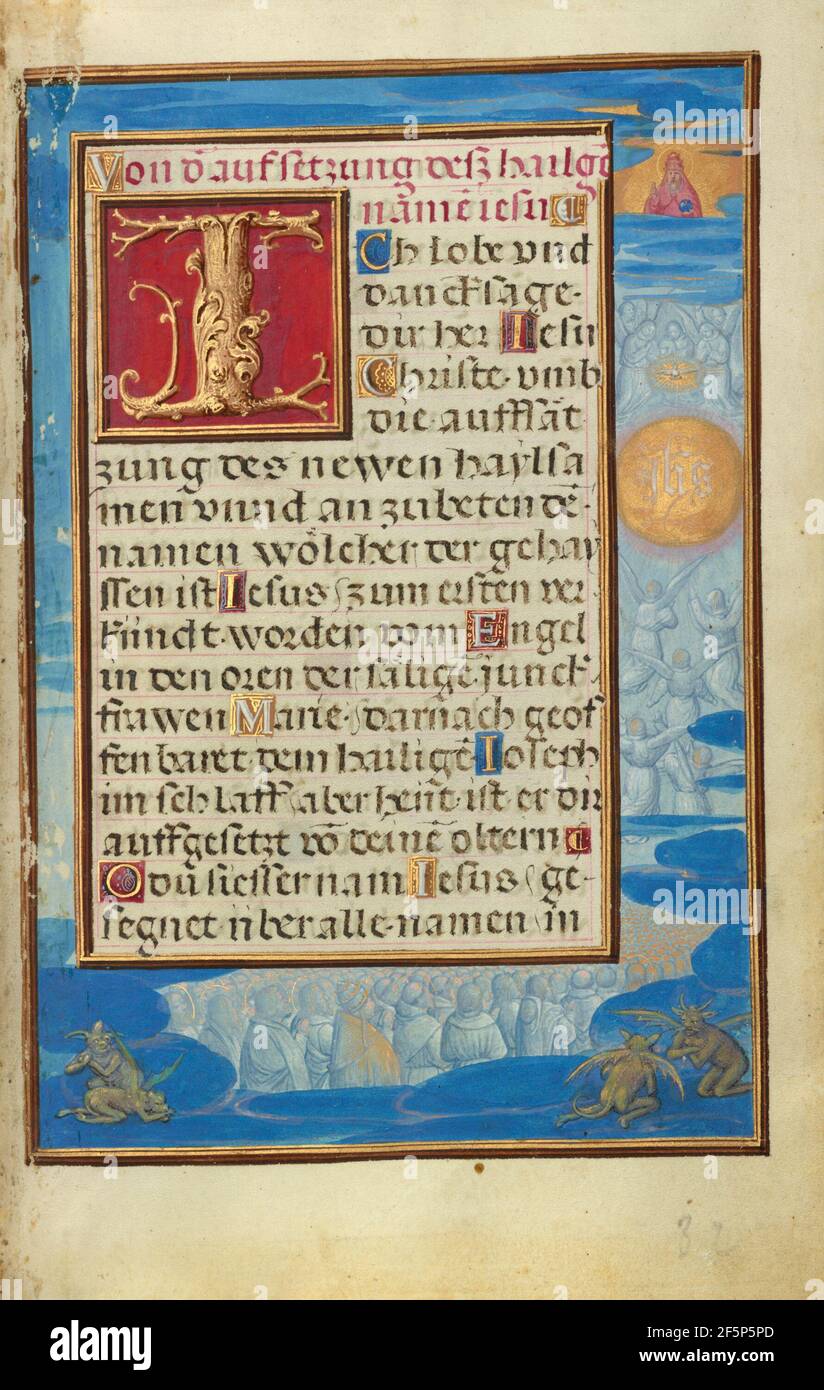 Von d̄ aufsetzung desz hailgē
namē iesu
ICh lobe vnd
danckſage
dir her Ieſu
Chriſte vmb
die auffſāt
zung des newen haylſa
men vnnd anzubeten dē
namen wölcher der gehay
ſſen iſt Ieſus zum erſten ver
kündt worden vom Engel
in den oren der ſäligē junck
frawen Marie darnach geof
fenbaret dem hailigē Ioſeph
im ſchlaff aber heūt iſt er dir
auffgeſetzt vō deinē öltern
O du ſieſſer nam Ieſus ge-
ſegnet über alle namen in
jhs
32
alamy
Image ID: 2F5P5PD
www.alamy.com